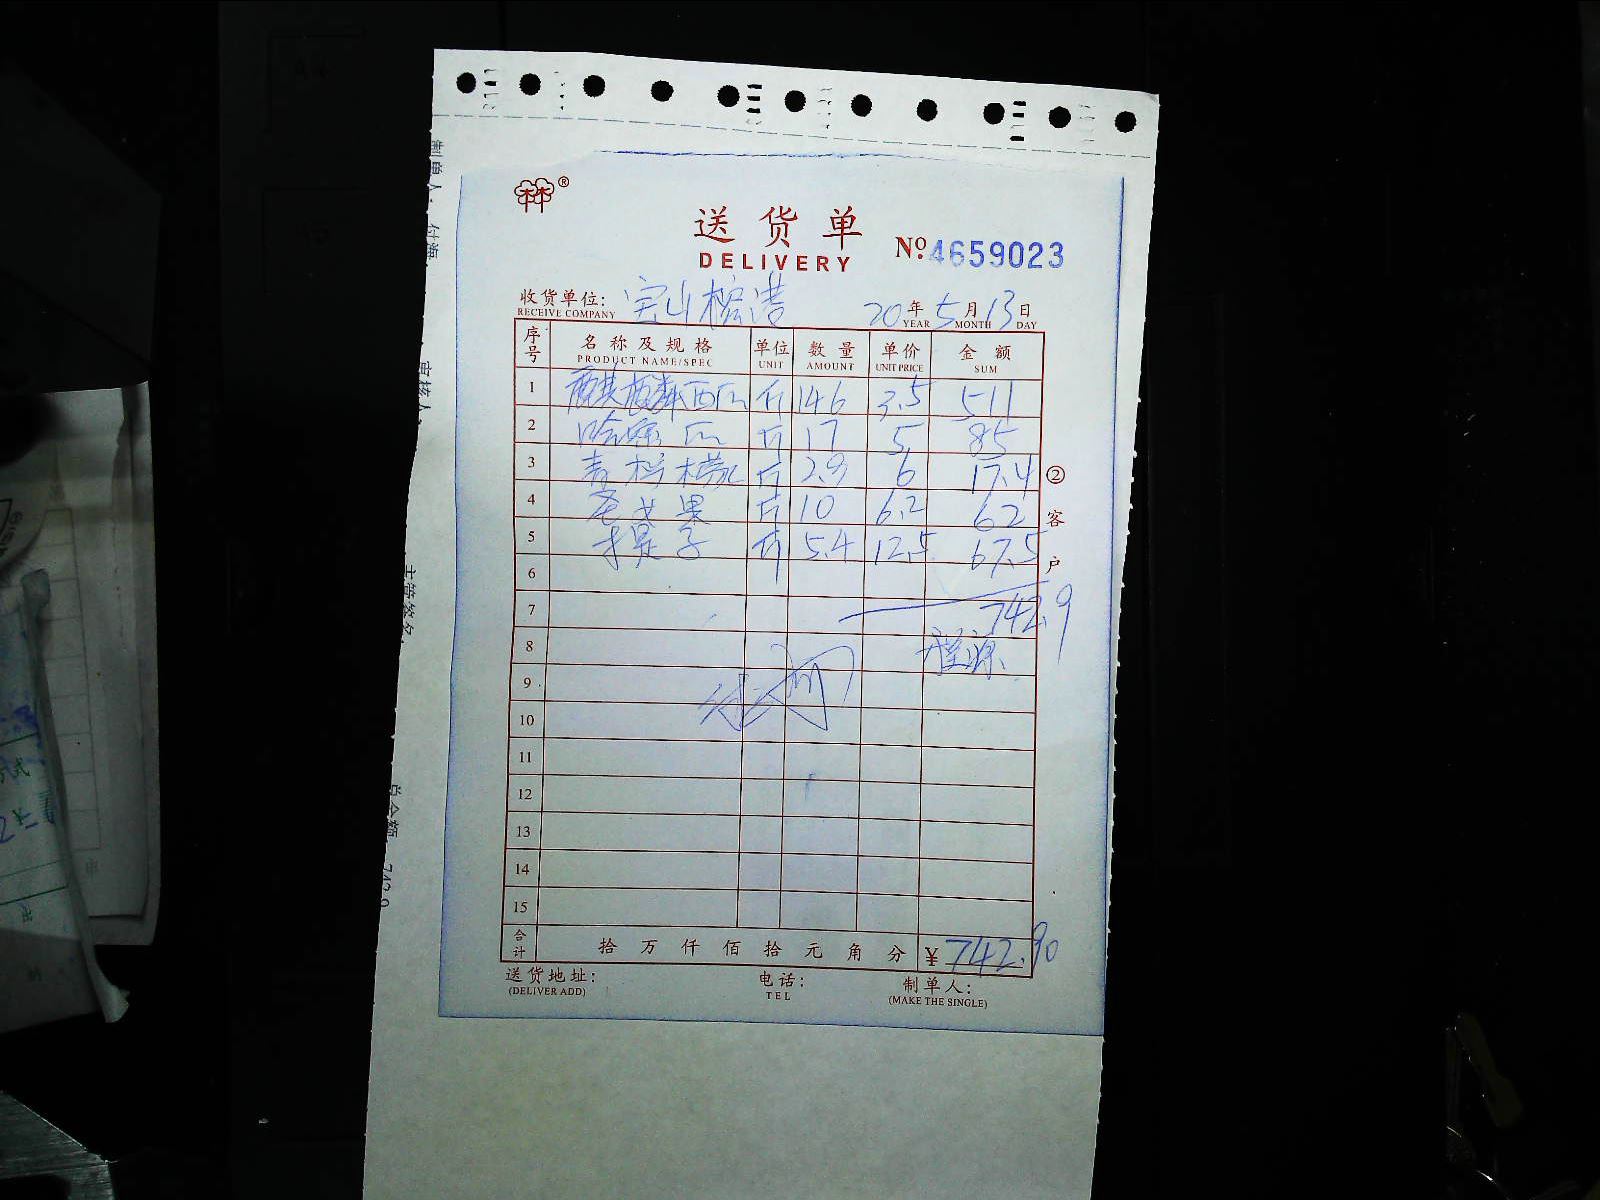 送货单
DELIVERY
No: 4659023
收货单位: 宝山榕港 20年5月13日
RECEIVE COMPANY YEAR MONTH DAY
序号 名称及规格 单位 数量 单价 金额
PRODUCT NAME/SPEC UNIT AMOUNT UNIT PRICE SUM
1 麒麟西瓜 斤 146 3.5 511
2 哈密瓜 斤 17 5 85
3 青柠檬 斤 2.9 6 17.4
4 火果 斤 10 6.2 62
5 提子 斤 5.4 12.5 67.5
6
7 742.9
8
9
10
11
12
13
14
15
合计 拾万仟佰拾元角分 ¥742.90
送货地址: 电话: 制单人:
(DELIVER ADD) TEL (MAKE THE SINGLE)
②客户
制单人:
审核人:
主管签名:
总金额: 742.9